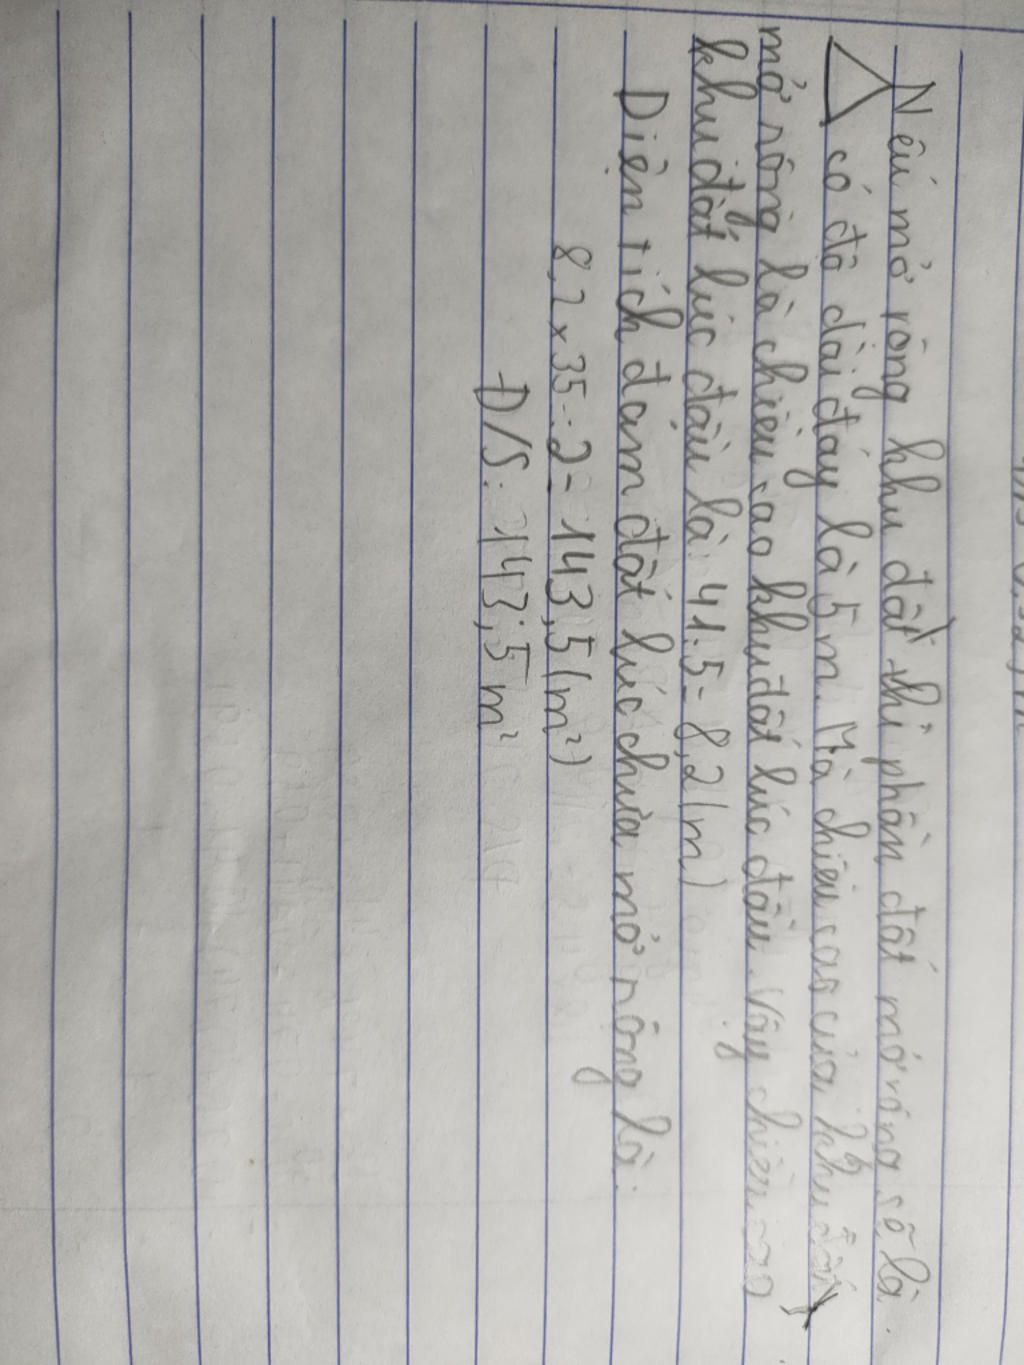 Nếu mở rộng khu đất thì phần đất mở rộng sẽ là
△ có độ dài đáy là 5m. Mà chiều cao của khu đất
mở rộng là chiều cao khu đất lúc đầu. Vậy chiều cao
khu đất lúc đầu là: 41:5=8,2(m)
Diện tích đám đất lúc chưa mở rộng là:
8,2×35:2=143,5(m²)
Đ/S: 143,5m²